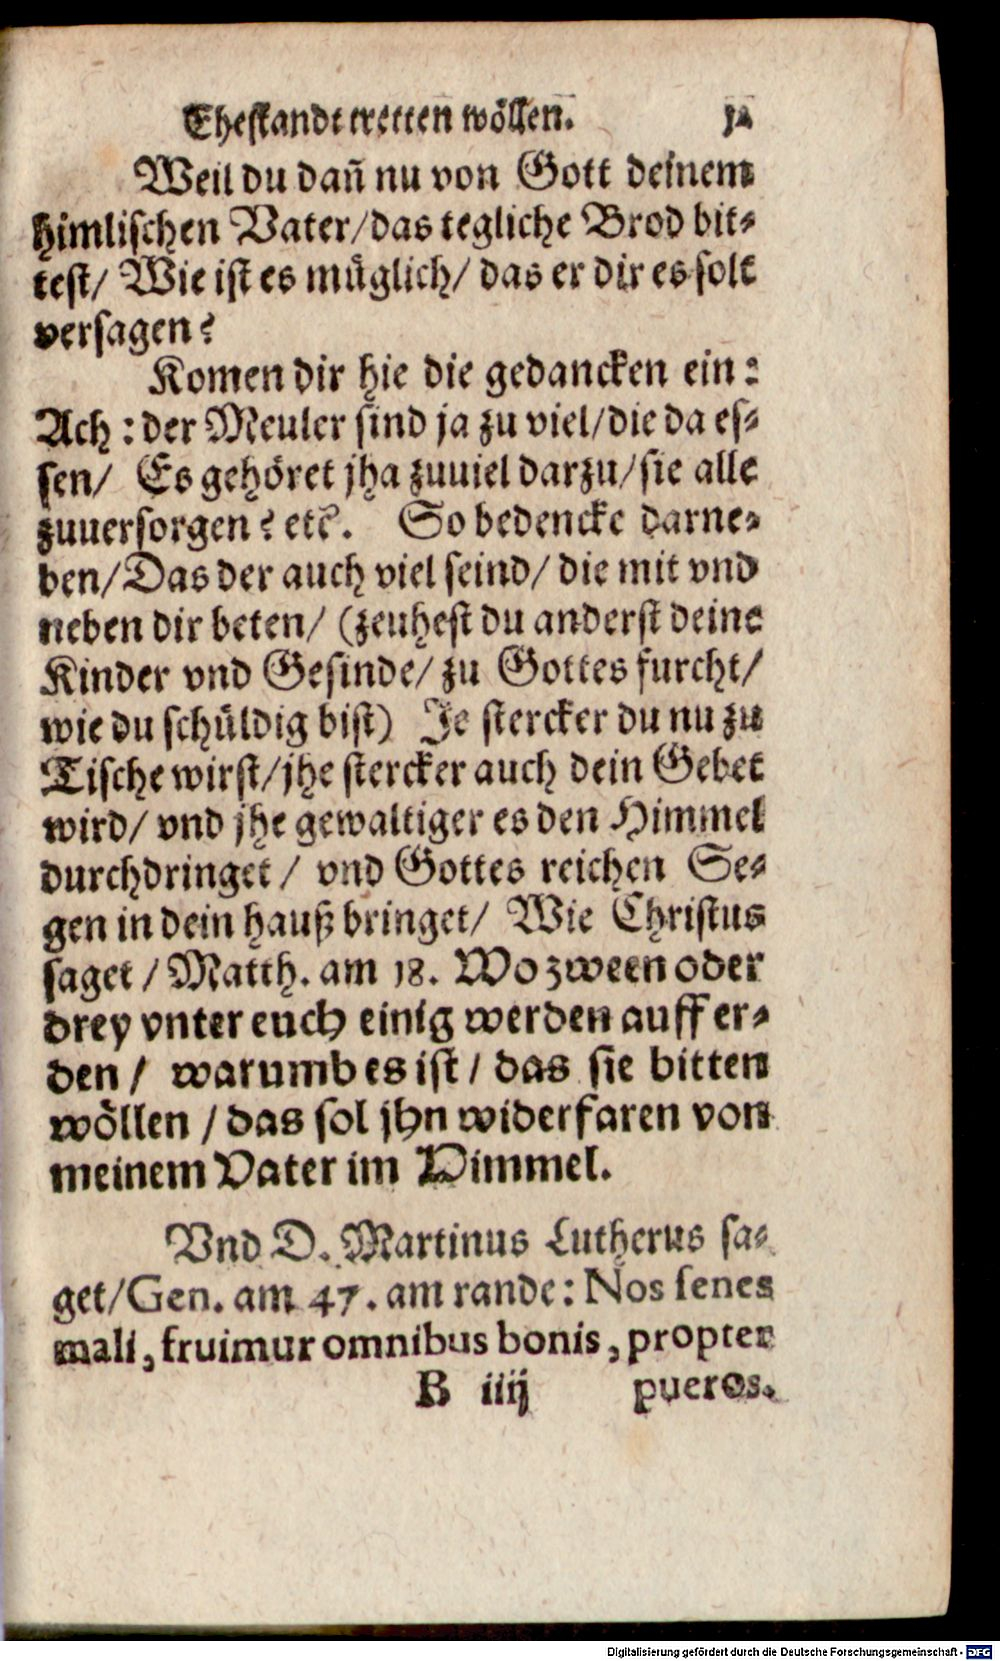 Ehestandt tretten wöllen. 12
Weil du dañ nu von Gott deinem
himlischen Vater/das tegliche Brod bit⸗
test/ Wie ist es müglich/ das er dir es solt
versagen?
Komen dir hie die gedancken ein:
Ach: der Meuler sind ja zu viel/die da es⸗
sen/ Es gehöret jha zuuiel darzu/sie alle
zuuersorgen? etc. So bedencke darne⸗
ben/Das der auch viel seind/ die mit vnd
neben dir beten/ (zeuhest du anderst deine
Kinder vnd Gesinde/ zu Gottes furcht/
wie du schüldig bist) Je stercker du nu zu
Tische wirst/jhe stercker auch dein Gebet
wird/ vnd jhe gewaltiger es den Himmel
durchdringet/ vnd Gottes reichen Se⸗
gen in dein hauß bringet/ Wie Christus
saget/Matth. am 18. Wo zween oder
drey vnter euch einig werden auff er⸗
den/ warumb es ist/ das sie bitten
wöllen/das sol jhn widerfaren von
meinem Vater im Himmel.
Vnd D. Martinus Lutherus sa⸗
get/Gen. am 47. am rande: Nos senes
mali, fruimur omnibus bonis, propter
B iiij pueros.
Digitalisierung gefördert durch die Deutsche Forschungsgemeinschaft - DFG